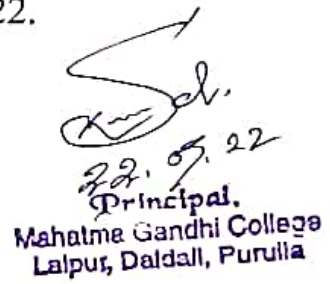 22.
Sd.
22. 09. 22
Principal.
Mahatma Gandhi College
Lalpur, Daldali, Purulia